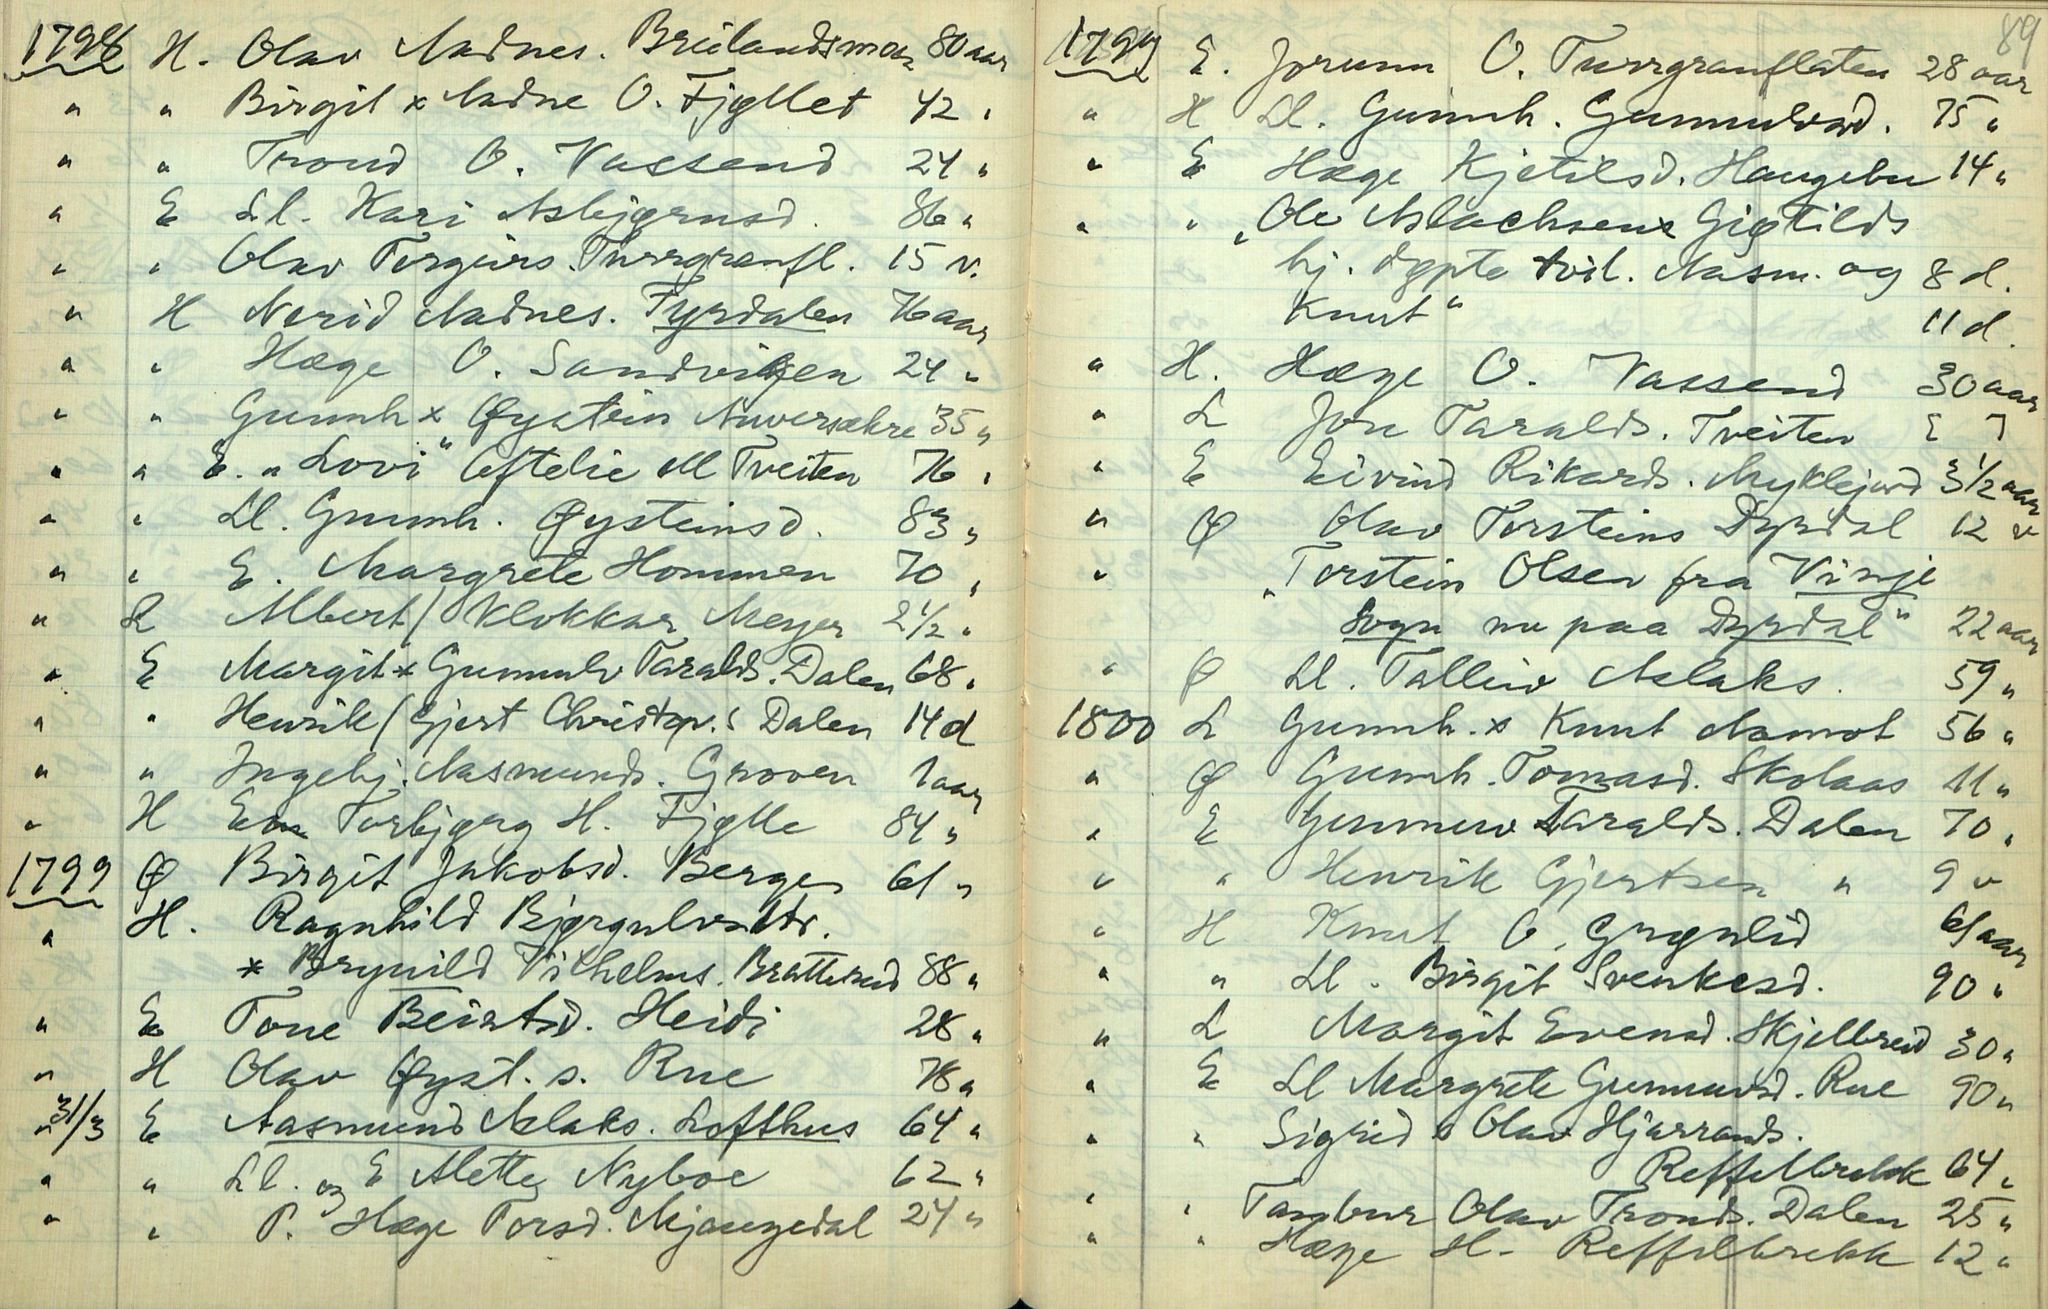 1798 H. Olav Aadnes. Breilandsmoen 80 aar
" " Birgit x Aadne O. Fjøllet 42 "
" " Trond O. Vassend 24 "
" E Ll. Kari Asbjørnsd. 86 "
" " Olav Torgeirs. Turrgranfl. 15 v.
" H Nerid Aadnes. Tyrdalen 76 aar
" " Hæge O. Sandvigen 24 "
" " Gunnh x Øystein Anversækre 35 "
" " E. "Lovi" Oftelie M Tveiten 76 "
" " Ll. Gunnh. Øysteinsd. 83 "
" " E. Margrete Hommen 70 "
" L Albert / Klokkar Meyer 2 1/2 "
" E Margit x Gunnulv Taralds. Dalen 68 "
" " Henrik / Gjert Christop. s Dalen 14 d
" " Ingebj. Aasmunds. Groven 1 aar
" H Em Torbjørg H. Fjølle 84 "
1799 Ø Birgit Jakobsd. Berge 61 "
" H. Ragnhild Bjørgulvsdtr.
x Brynild Vilhelms. Bratterud 88 "
" E Tone Beintsd. Heidi 28 "
" H Olav Øyst. s. Rue 78 "
" 31/3 E Aasmund Aslaks. Lofthus 64 "
" " Ll. og E Alette Nyboe 62 "
" " P. Hæge Torsd. Mjaugedal 24 "
89
1799 E. Jorunn O. Turrgranflaten 28 aar
" H Ll. Gunnh. Gunnulvsd. 75 "
" E Hæge Kjetilsd. Haugebu 14 "
" " "Ole Aslachsens Gigtilds
hj. døpte tvil. Aasm. og 8 d.
Knut" 11 d.
" H. Hæge O. Vassend 30 aar
" L Jon Taralds. Tveiten [ ]
" E Eivind Rikards. Myklejord 3 1/2 aar
" Ø Olav Torsteins Dyrdal 12 v
" "Torstein Olsen fra Vinje
Sogn nu paa Dyrdal" 22 aar
" Ø Ll. Talleiv Aslaks. 59 "
1800 L Gunnh. x Knut Aamot 56 "
" Ø Gunnh. Tomasd. Skolaas 11 "
" E Gunnuv Taralds. Dalen 70 "
" " Henrik Gjertsen " 9 v
" H Knut O. Grønlid 61 aar
" " Ll. Birgit Svenkesd. 90 "
" L Margit Evensd. Skjelbreid 30 "
" E Ll Margrete Gunnuvsd. Rue 90 "
" " Sigrid x Olav Hjarrands.
Reffelbrekk 64 "
" " Tambur Olav Tronds. Dalen 25 "
" " Hæge H. Reffelbrekk 12 "